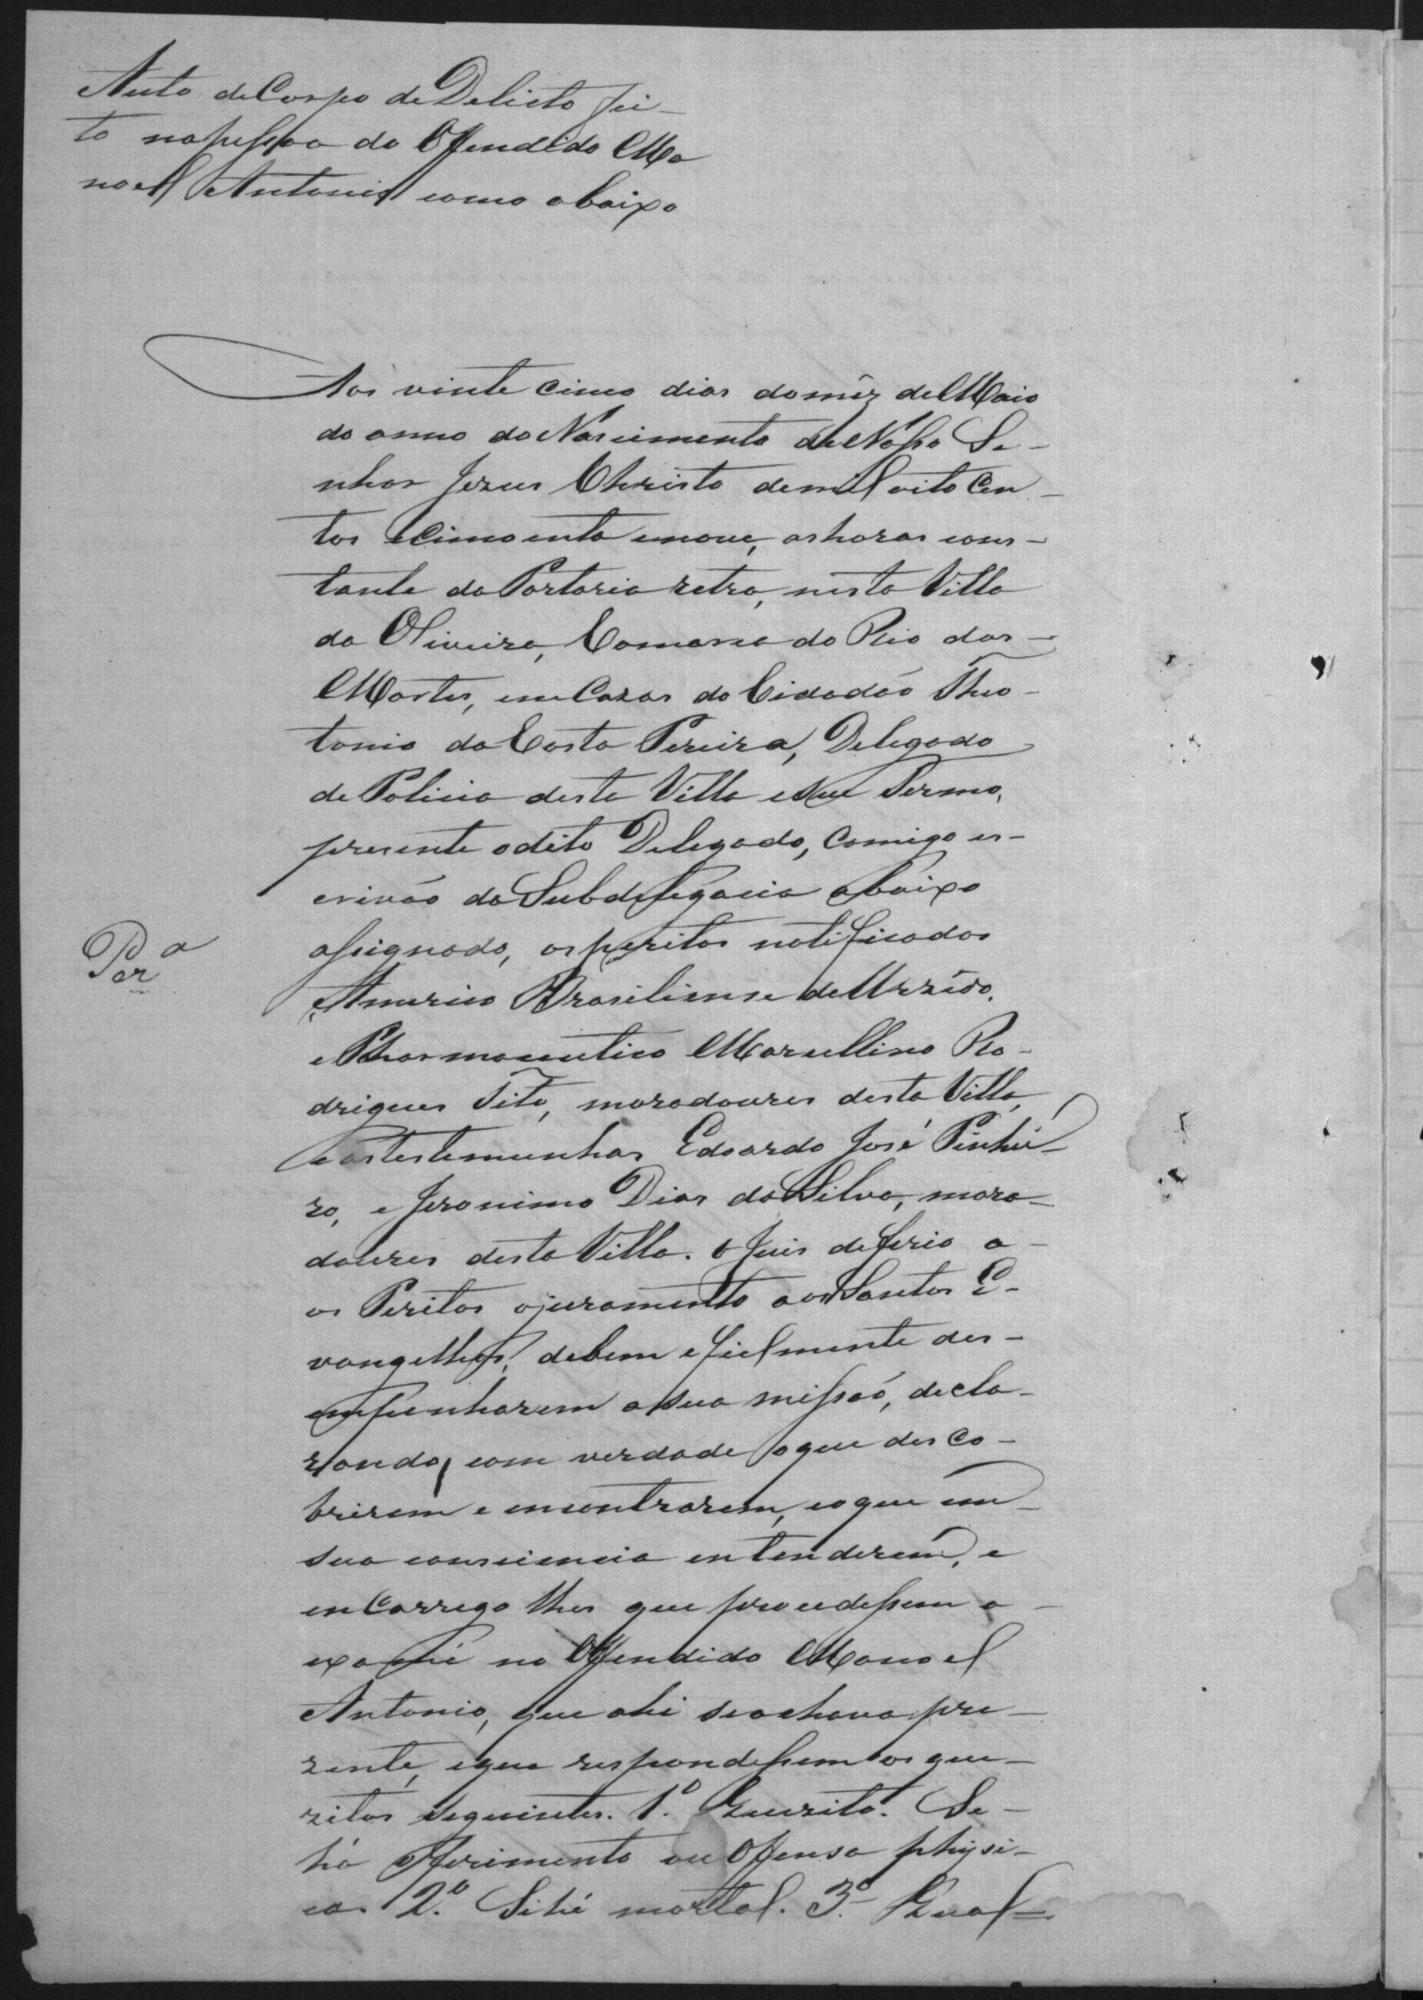 Auto de Corpo de Delicto fei-
to na pessoa do Offendido Ma
noel Antonio como abaixo
Aos vinte cinco dias do mêz de Maio
do anno do Nascimento de Nosso Se-
nhor Jezus Christo de mil oito Cen-
tos e cincoenta enove, as horas cons-
tante da Portaria retro, nesta Villa
da Oliveira, Comarca do Rio das
Mortes, em Cazas do Cidadão Theo-
tonio da Costa Pereira, Delegado
de Policia desta Villa e seu Termo,
presente o dito Delegado, comigo es-
crivão da Subdelegacia abaixo
assignado, os peritos notificados
Per.a
Americo Brasiliense de
e Pharmaceutico Marcellino Ro-
drigues Tito, moradoures desta Villa,
e as testemunhas Edoardo José Pinhei-
ro, e Jeronimo Dias da Silva, mora-
doures desta Villa. o Juis deferio a-
os Peritos o juramento aos Santos E-
vangelhos, de bem e fielmente des-
empenharem a sua missaó, decla-
rando, com verdade o que desco-
brirem e encontrarem, e o que em
sua consciencia entenderem, e
encarrego lhes que procedessem a
exame no Offendido Manoel
Antonio, que ahi se achava pre-
zente, e que respondessem os que-
zitos seguintes. 1.º Quezito. Se
há Ferimento ou Offensa physi-
ca. 2.º Si hé mortal. 3.º Qual=